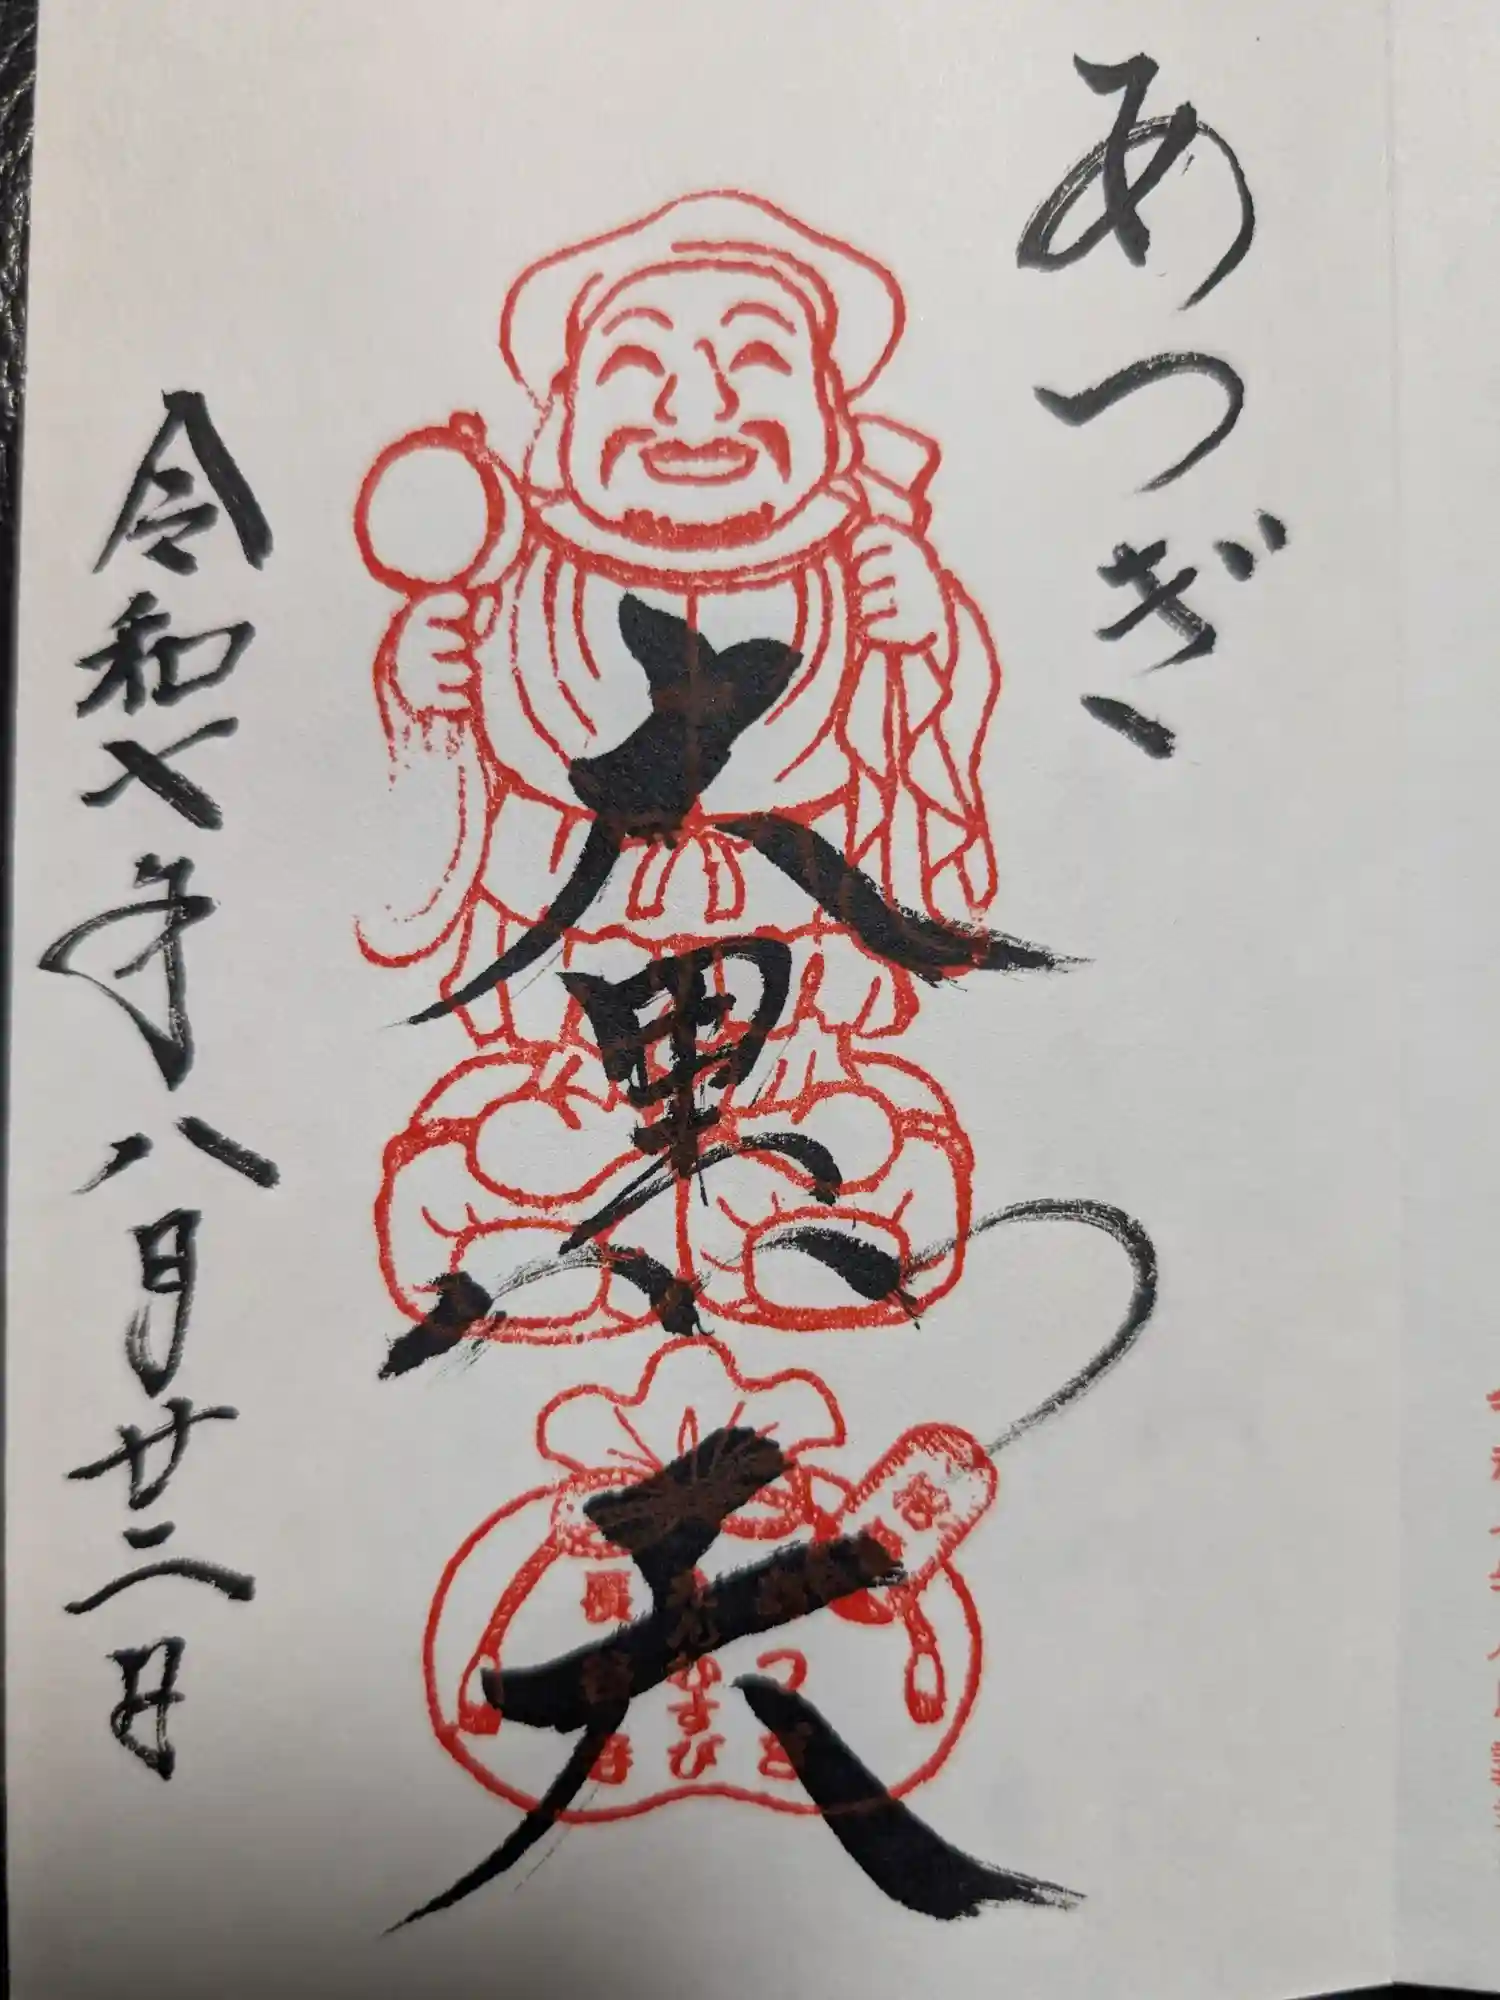 あつぎ
大黒天
令和七年八月廿二日
むすび
つぎ